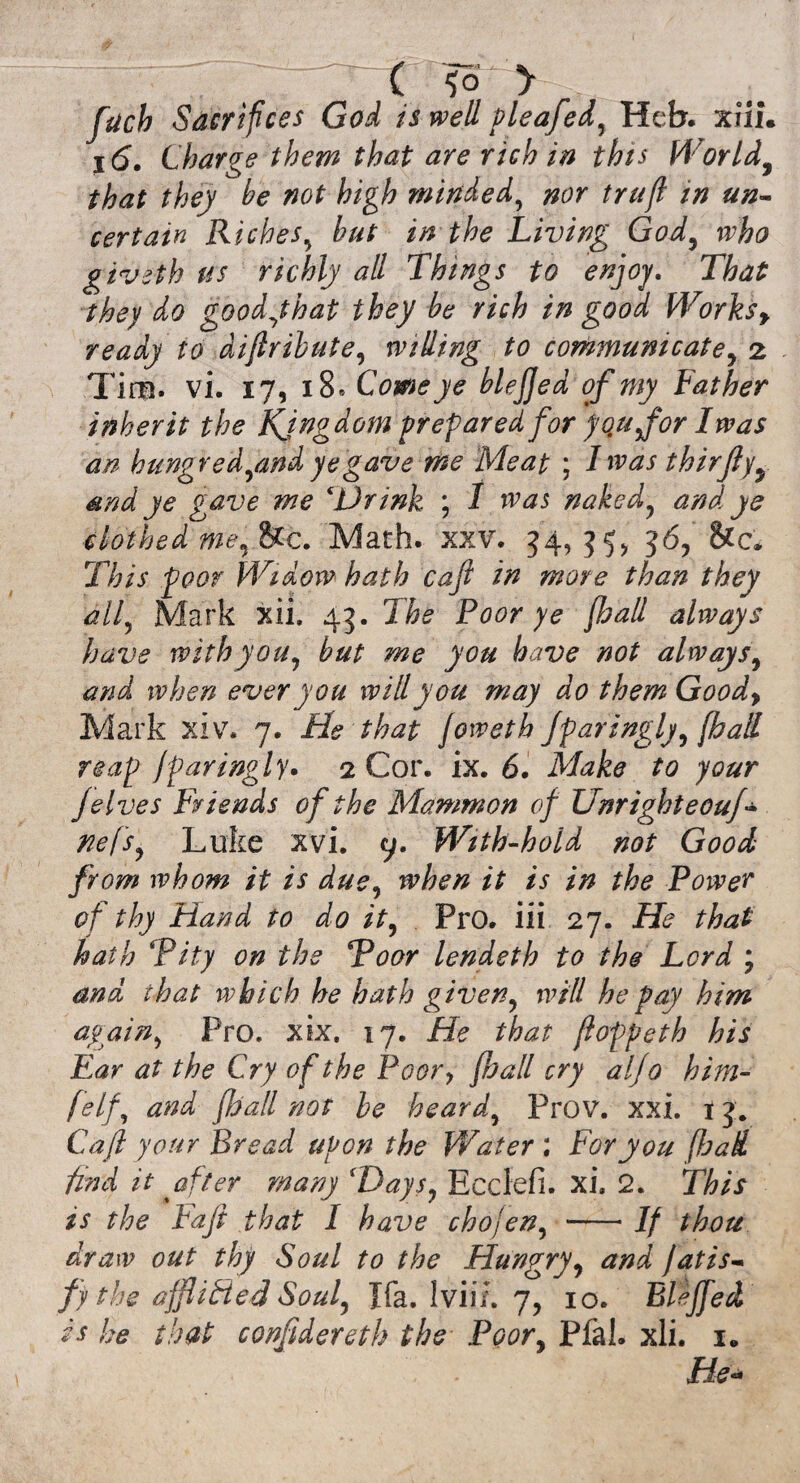 ( 50 )
ſuch Sacrifices God is well pleaſed, Heb. xiii.
16. Charge them that are rich in this World,
that they be not high minded, nor truſt in un-
certain Riches, but in the Living God, who
giveth us richly all Things to enjoy. That
they do good, that they be rich in good Works,
ready to diſtribute, willing to communicate, 2
Tim. vi. 17, 18. Come ye bleſſed of my Father
inherit the Kingdom prepared for you, for I was
an hungred, and ye gave me Meat ; I was thirſty,
and ye gave me Drink ; I was naked, and ye
clothed me, &c. Math. xxv. 34, 35, 36, &c.
This poor Widow hath caſt in more than they
all, Mark xii. 43. The Poor ye ſhall always
have with you, but me you have not always,
and when ever you will you may do them Good,
Mark xiv. 7. He that ſoweth ſparingly, ſhall
reap ſparingly. 2 Cor. ix. 6. Make to your
ſelves Friends of the Mammon of Unrighteouſ-
neſs, Luke xvi. 9. With-hold not Good
from whom it is due, when it is in the Power
of thy Hand to do it, Pro. iii 27. He that
hath Pity on the Poor lendeth to the Lord ;
and that which he hath given, will he pay him
again, Pro. xix. 17. He that ſtoppeth his
Ear at the Cry of the Poor, ſhall cry alſo him-
ſelf, and ſhall not be heard, Prov. xxi. 13.
Caſt your Bread upon the Water : For you ſhall
find it after many Days, Eccleſi. xi. 2. This
is the Faſt that I have choſen, —— If thou
draw out thy Soul to the Hungry, and ſatis-
fy the afflicted Soul, Iſa. lviii. 7, 10. Bleſſed
is he that conſidereth the Poor, Pſal. xli. 1.
He-